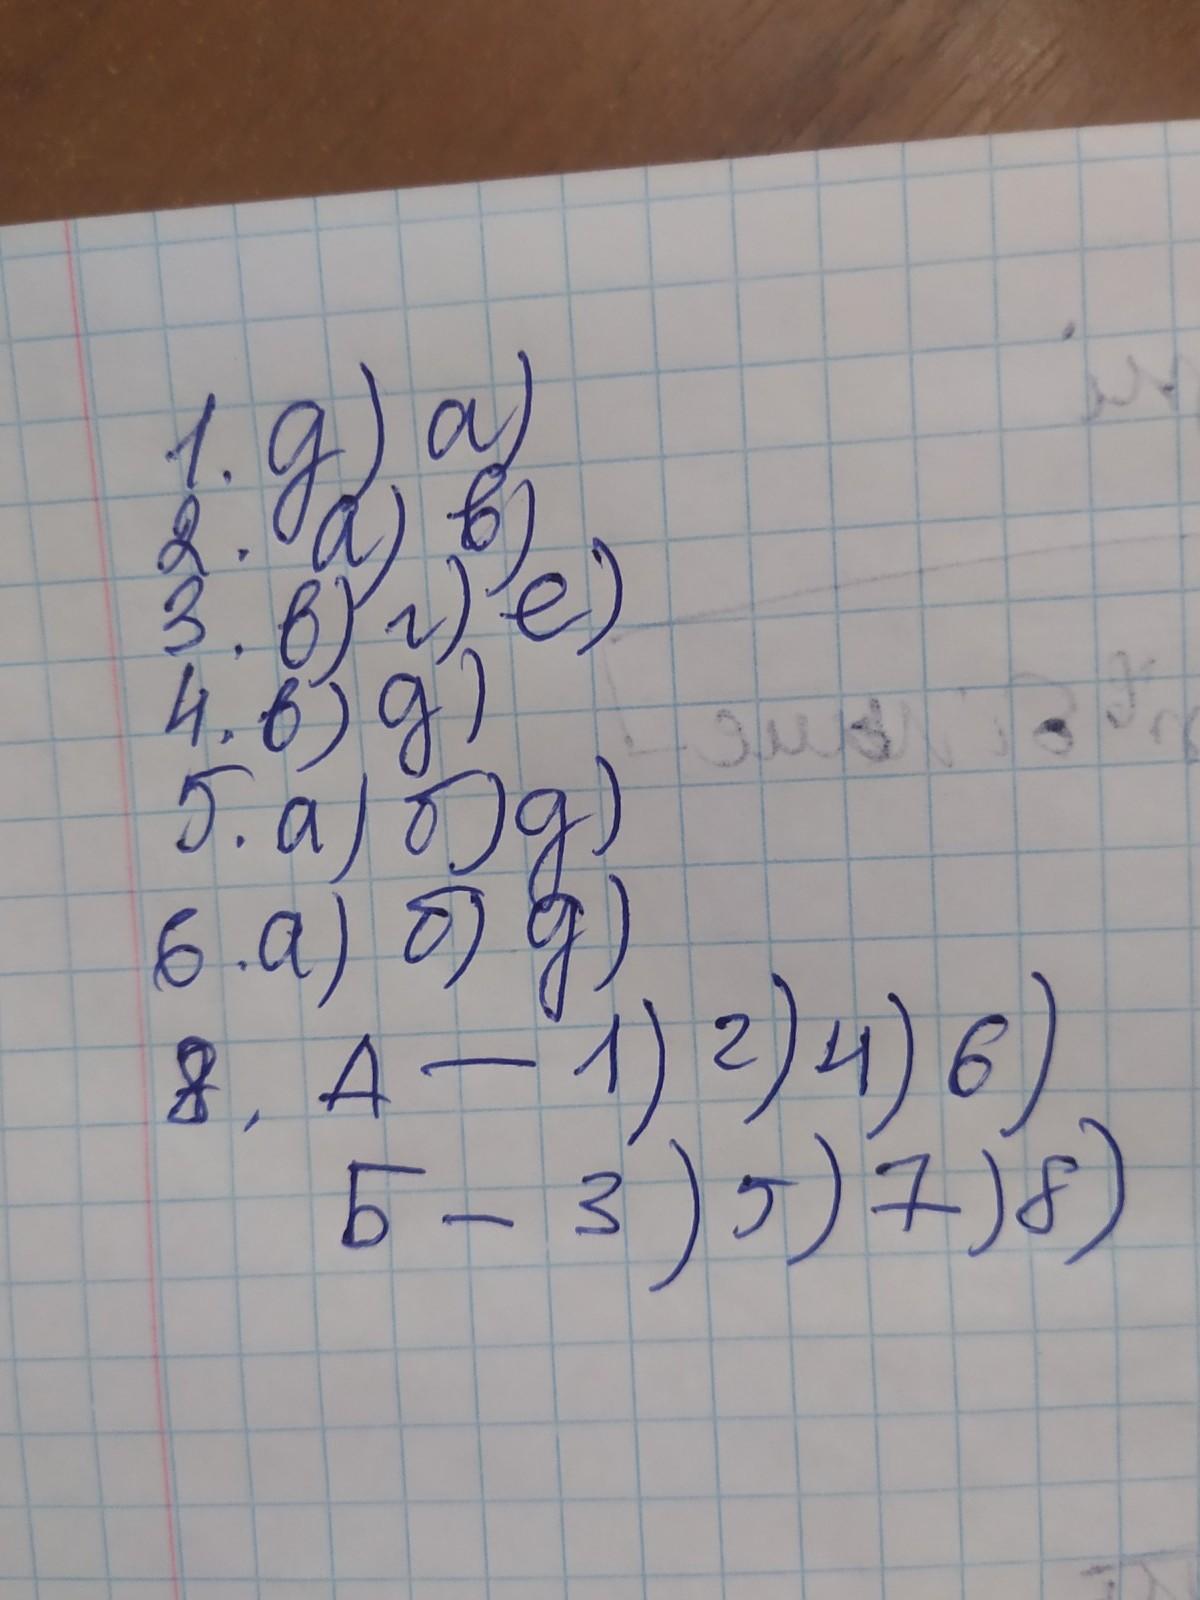 1. д) а)
2. а) в)
3. в) г) е)
4. в) д)
5. а) б) д)
6. а) б) д)
8. А — 1) 2) 4) 6)
Б — 3) 5) 7) 8)